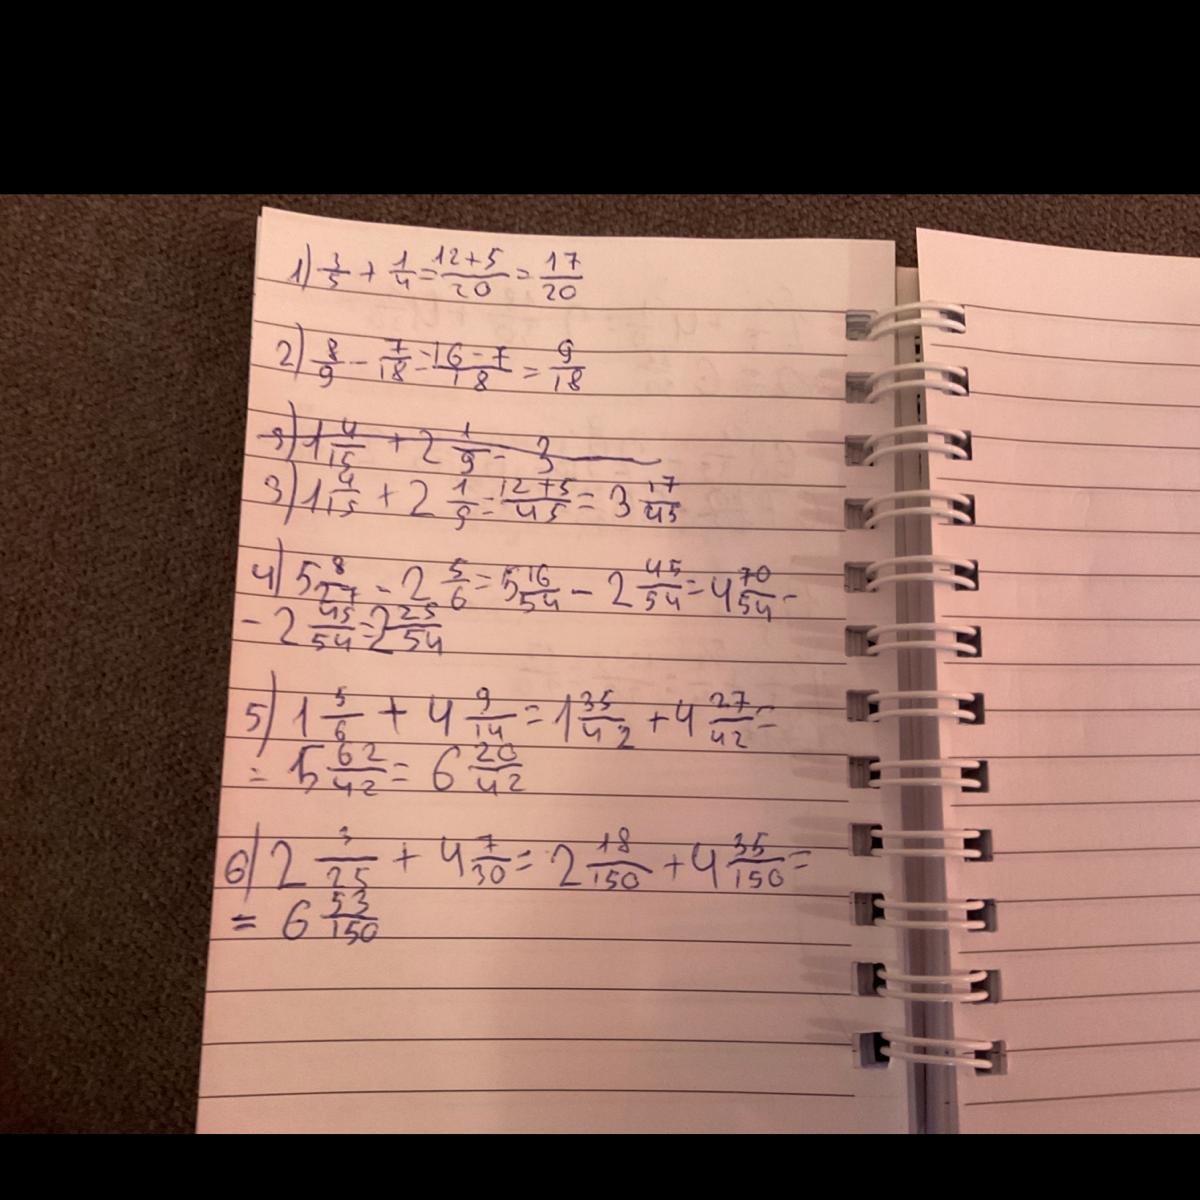 1) 3/5 + 1/4 = 12+5/20 = 17/20
2) 8/9 - 7/18 = 16-7/18 = 9/18
3) 1 4/15 + 2 1/9 = 3
3) 1 4/15 + 2 1/9 = 12+5/45 = 3 17/45
4) 5 8/27 - 2 5/6 = 5 16/54 - 2 45/54 = 4 70/54 -
- 2 45/54 = 2 25/54
5) 1 5/6 + 4 9/14 = 1 35/42 + 4 27/42 =
= 5 62/42 = 6 20/42
6) 2 3/25 + 4 7/30 = 2 18/150 + 4 35/150 =
= 6 53/150